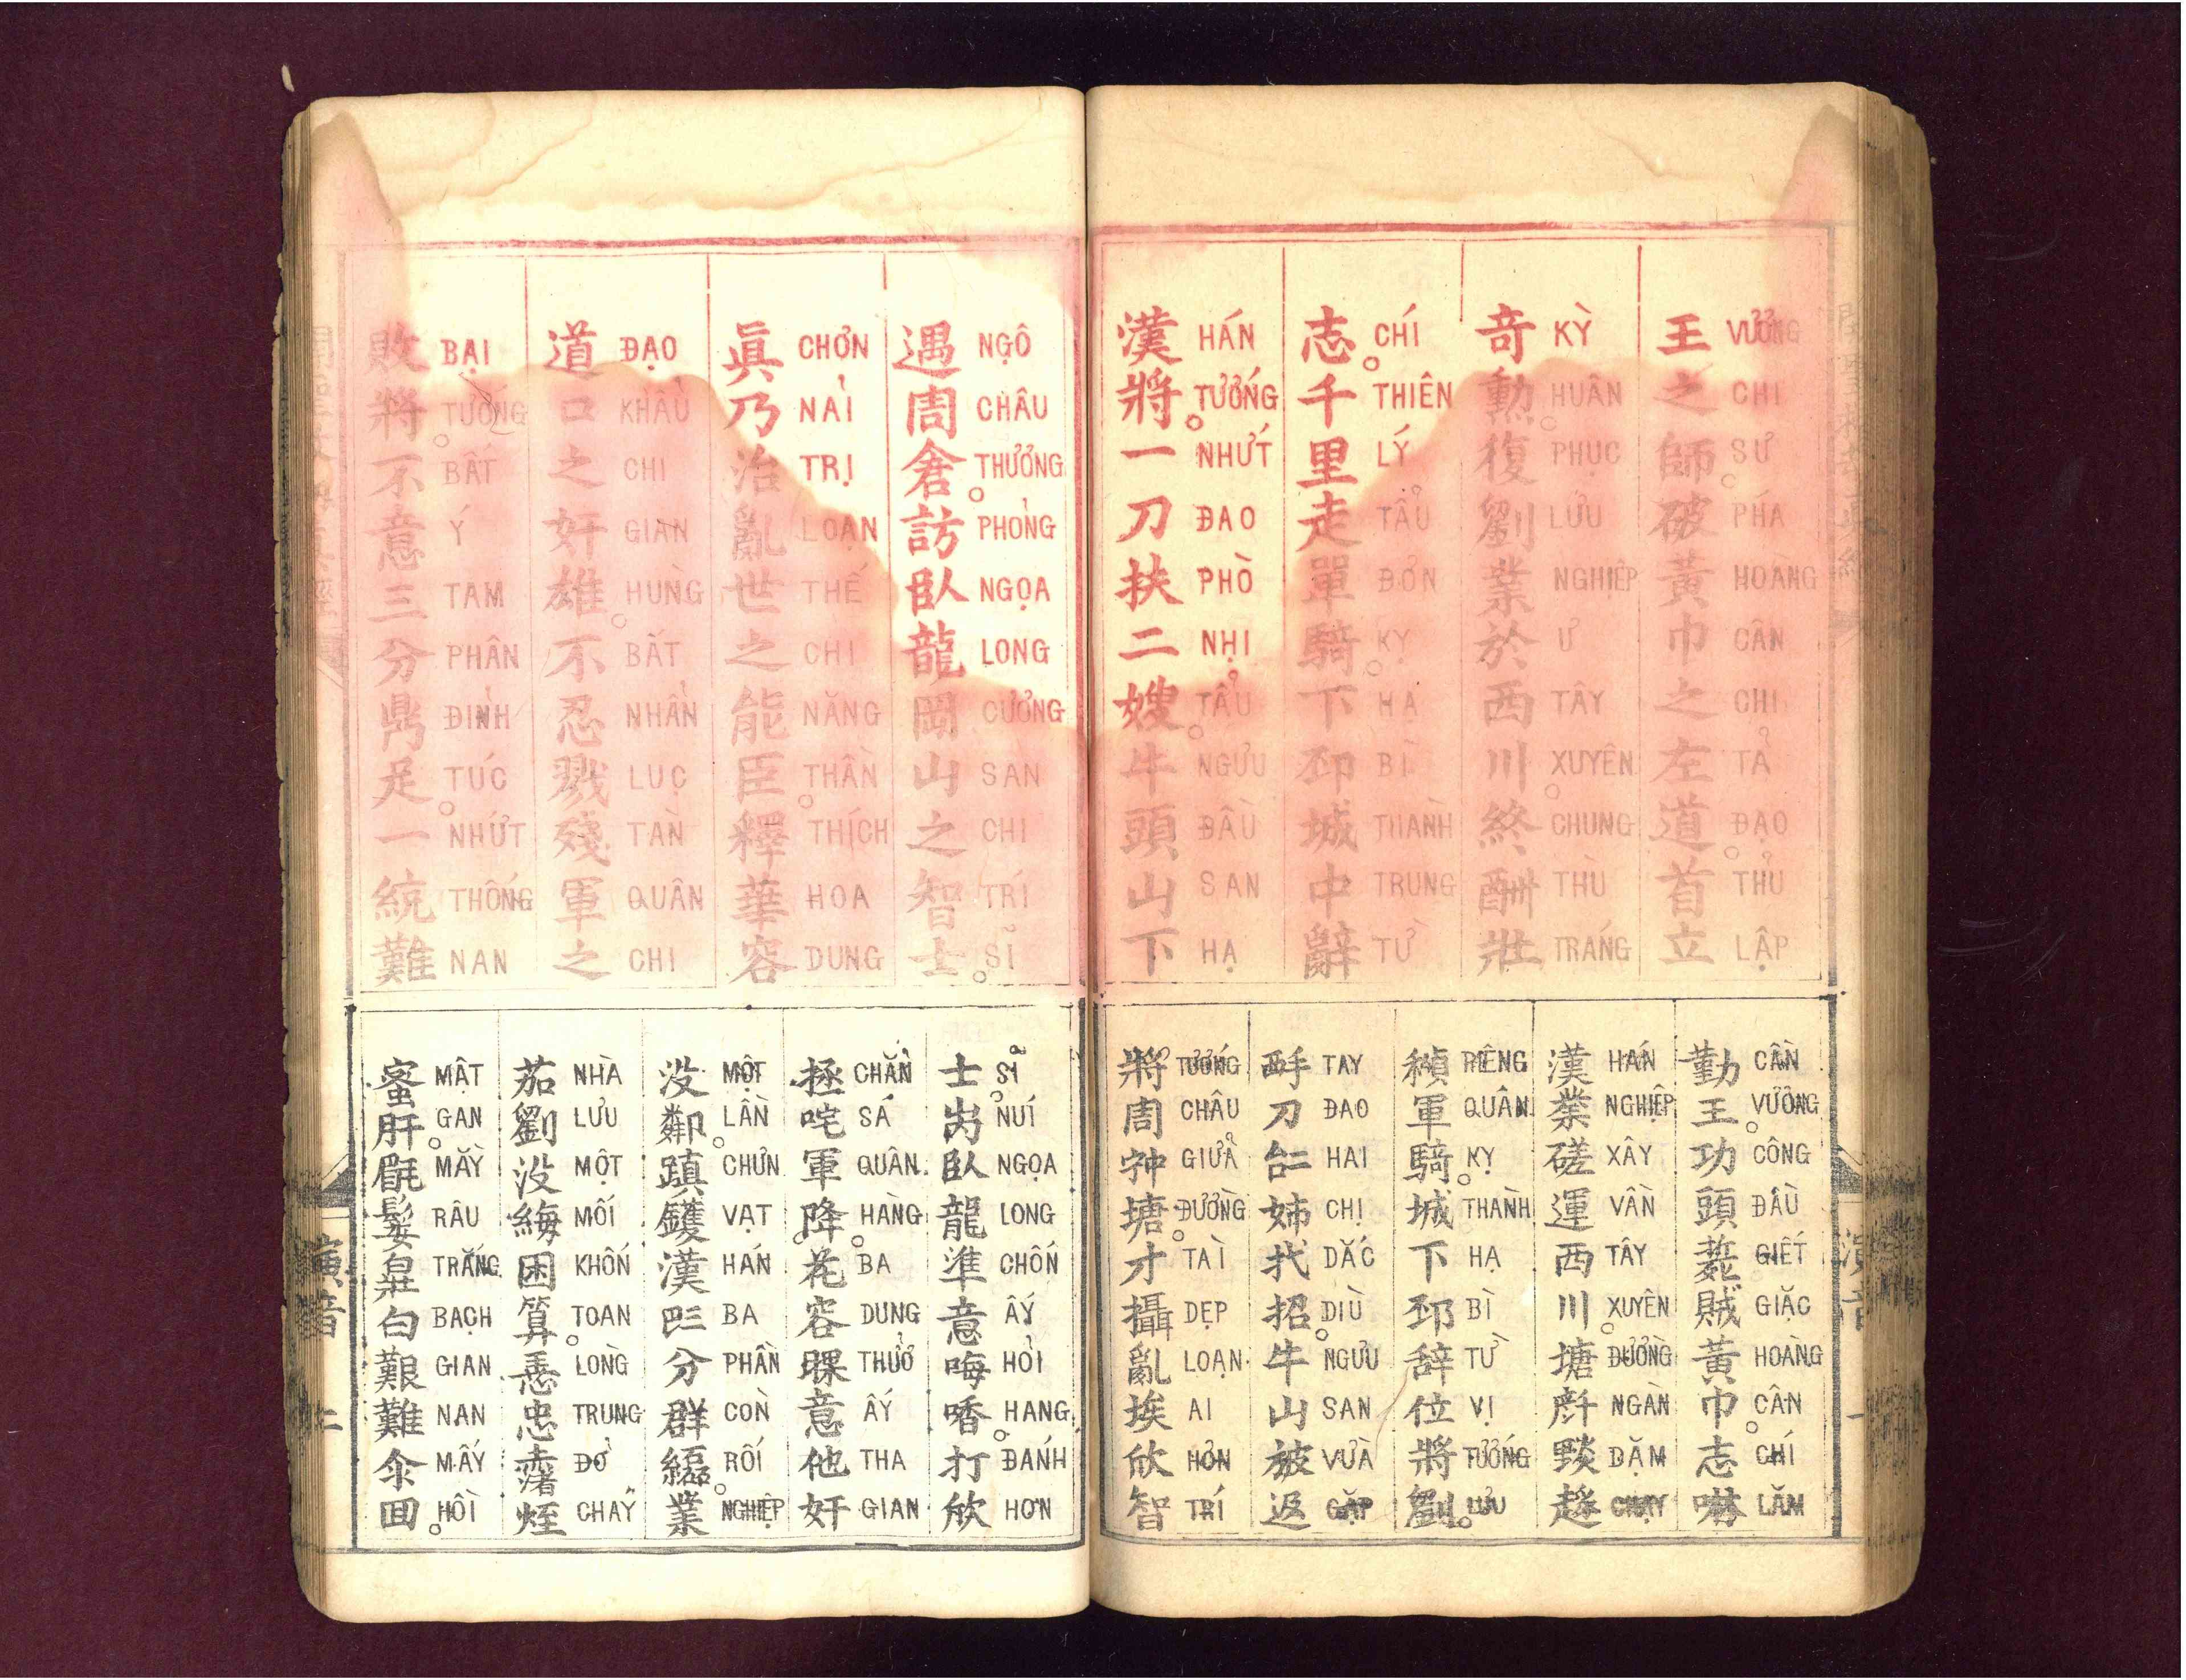 王之師破黃巾之左道首立
VƯƠNG CHI SƯ PHÁ HOÀNG CÂN CHI TẢ ĐẠO THỦ LẬP
奇勳復劉業於西川終酬壯
KỲ HUÂN PHỤC LƯU NGHIỆP Ư TÂY XUYÊN CHUNG THÙ TRÁNG
志千里走單騎下邳城中辭
CHÍ THIÊN LÝ TẨU ĐƠN KỴ HẠ BÌ THÀNH TRUNG TỪ
漢將一刀扶二嫂牛頭山下
HÁN TƯỚNG NHỨT ĐAO PHÒ NHỊ TẨU NGƯU ĐẦU SAN HẠ
勤王功頭賊黃巾志啉
CẦN VƯƠNG CÔNG ĐẦU GIẾT GIẶC HOÀNG CÂN CHÍ LĂM
漢業磋運西川塘趍
HÁN NGHIỆP XÂY VẦN TÂY XUYÊN ĐƯỜNG NGÀN DẶM CHẠY
積軍騎城下邳辞位將劉
RIÊNG QUÂN KỴ THÀNH HẠ BÌ TỪ VỊ TƯỚNG LƯU
刀姉招牛山返
TAY ĐAO HAI CHỊ DẮC DÌU NGƯU SAN VỪA GẶP
將周塘才攝亂埃欣智
TƯỚNG CHÂU GIỮA ĐƯỜNG TÀI DẸP LOẠN AI HƠN TRÍ
遇周倉訪臥龍岡山之智士
NGỘ CHÂU THƯƠNG PHỎNG NGỌA LONG CƯƠNG SAN CHI TRÍ SĨ
眞乃治亂世之能臣釋華容
CHƠN NẢI TRỊ LOẠN THẾ CHI NĂNG THẦN THÍCH HOA DUNG
道口之奸雄不忍戮殘軍之
ĐẠO KHẨU CHI GIAN HÙNG BẤT NHẪN LỤC TÀN QUÂN CHI
敗將不意三分鼎足一統難
BẠI TƯỚNG BẤT Ý TAM PHÂN ĐỈNH TÚC NHỨT THỐNG NAN
士臥龍準意晦打欣
SĨ NÚI NGỌA LONG CHỐN ẤY HỎI HANG ĐÁNH HƠN
拯咤軍降花容意他奸
CHẲN SÁ QUÂN HÀNG BA DUNG THUỞ ẤY THA GIAN
没蹎鑊漢分群業
MỘT LẦN CHƯN VẠT HÁN BA PHÂN CÒN RỐI NGHIỆP
茄劉没困算忠
NHÀ LƯU MỘT MỐI KHỐN TOAN LÒNG TRUNG ĐỎ CHẢY
蜜肝白艱難回
MẬT GAN MÀY RÂU TRẮNG BẠCH GIAN NAN MẤY HỒI
演音